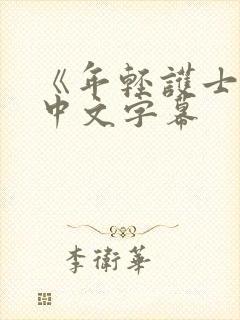 《年輕護士
中文字幕
李衛華